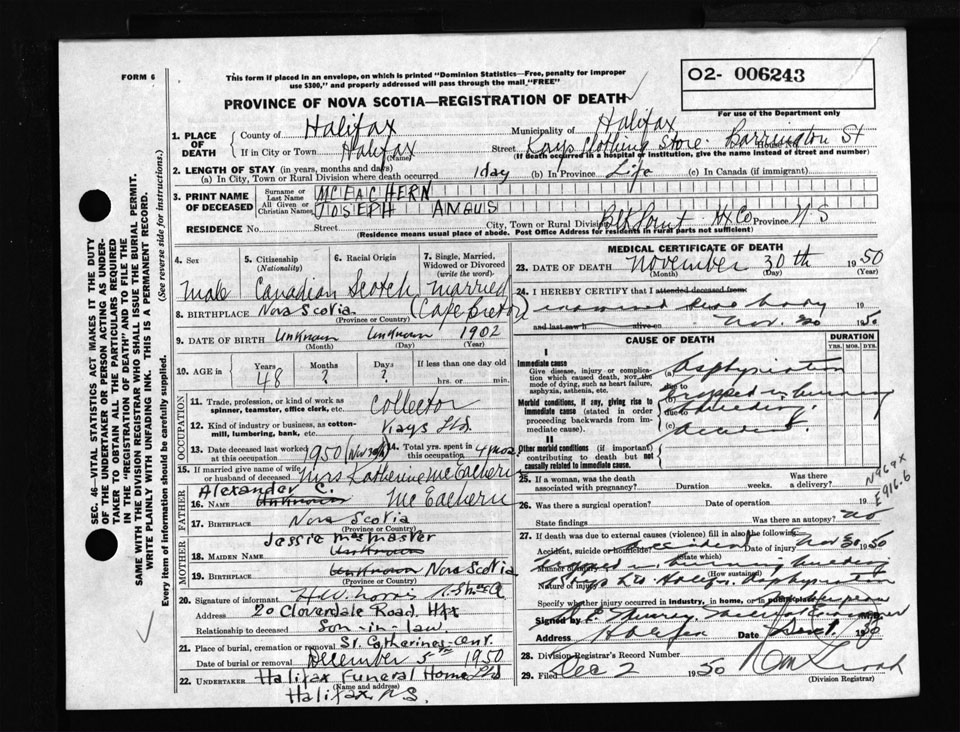 FORM 6
This form if placed in an envelope, on which is printed "Dominion Statistics—Free, penalty for improper
use $300," and properly addressed will pass through the mail "FREE"
O2- 006243
For use of the Department only
PROVINCE OF NOVA SCOTIA—REGISTRATION OF DEATH
1. PLACE OF DEATH
County of Halifax Municipality of Halifax
If in City or Town Halifax (Name) Street Kays Clothing Store. Barrington St House No.
(If death occurred in a hospital or institution, give the name instead of street and number)
2. LENGTH OF STAY (in years, months and days)
(a) In City, Town or Rural Division where death occurred 1 day (b) In Province Life (c) In Canada (if immigrant)
3. PRINT NAME OF DECEASED
Surname or Last Name MCEACHERN
All Given or Christian Names JOSEPH ANGUS
RESIDENCE No. Street City, Town or Rural Division Hx Co Province N S
(Residence means usual place of abode. Post Office Address for residents in rural parts not sufficient)
4. Sex Male
5. Citizenship (Nationality) Canadian
6. Racial Origin Scotch
7. Single, Married, Widowed or Divorced (write the word) married
8. BIRTHPLACE Nova Scotia. (Cape Breton)
(Province or Country)
9. DATE OF BIRTH Unknown Unknown 1902
(Month) (Day) (Year)
10. AGE if Years 48 Months ? Days ? If less than one day old hrs. or min.
OCCUPATION
11. Trade, profession, or kind of work as
spinner, teamster, office clerk, etc. Collector
12. Kind of industry or business, as cotton-
mill, lumbering, bank, etc. Kays Ltd.
13. Date deceased last worked
at this occupation 1950 (Nov 30th)
14. Total yrs. spent in
this occupation 4 mos
15. If married give name of wife
or husband of deceased Mrs Katherine McEachern
FATHER
Alexander C.
16. NAME Unknown McEachern
17. BIRTHPLACE Nova Scotia
(Province or Country)
MOTHER
Jessie McMaster
18. MAIDEN NAME Unknown
19. BIRTHPLACE Unknown Nova Scotia
(Province or Country)
20. Signature of informant H W. Norris
Address 20 Cloverdale Road, Hfx
Relationship to deceased Son-in-law
21. Place of burial, cremation or removal St. Catherines Cem.
Date of burial or removal December 5th 1950
22. UNDERTAKER Halifax Funeral Home Ltd
(Name and address)
Halifax N.S.
MEDICAL CERTIFICATE OF DEATH
23. DATE OF DEATH November 30th 1950
(Month) (Day) (Year)
24. I HEREBY CERTIFY that I attended deceased from
dead body
and last saw h alive on Nov. 30 1950
CAUSE OF DEATH
DURATION
YRS. MOS. DYS.
I
Immediate cause
Give disease, injury or complica-
tion which caused death, not the
mode of dying, such as heart failure,
asphyxia, asthenia, etc.
(a) Asphyxiation
due to
Morbid conditions, if any, giving rise to
immediate cause (stated in order
proceeding backwards from im-
mediate cause).
(b) trapped in burning
due to building.
(c) accident
II
Other morbid conditions (if important)
contributing to death but not
causally related to immediate cause.
25. If a woman, was the death
associated with pregnancy? Duration weeks. Was there
a delivery?
N969X
E916.6
26. Was there a surgical operation? Date of operation 19
State findings Was there an autopsy? no
27. If death was due to external causes (violence) fill in also the following:
Accident, suicide or homicide? Accident Date of injury Nov 30 1950
(State which)
Manner of injury trapped in burning building
(How sustained)
Nature of injury Asphyxiation
Specify whether injury occurred in industry, in home, or in public place
Signed by Medical Examiner
Address Halifax Date 1950
28. Division Registrar's Record Number
29. Filed Dec 2 1950
(Division Registrar)
SEC. 46—VITAL STATISTICS ACT MAKES IT THE DUTY
OF THE UNDERTAKER OR PERSON ACTING AS UNDER-
TAKER TO OBTAIN ALL THE PARTICULARS REQUIRED
IN THE "REGISTRATION OF DEATH" AND TO FILE THE
SAME WITH THE DIVISION REGISTRAR WHO SHALL ISSUE THE BURIAL PERMIT.
WRITE PLAINLY WITH UNFADING INK. THIS IS A PERMANENT RECORD.
Every item of information should be carefully supplied. (See reverse side for instructions.)